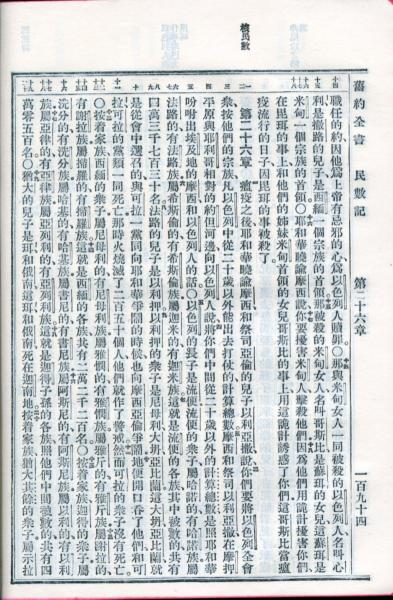 舊約全書 民數記 第二十六章 一百九十四
核民數
職任的約因他爲上帝有忌邪的心爲以色列人贖罪〇那與米甸女人一同被殺的以色列人名叫心
利是撒路的兒子是西緬一個宗族的首領那被殺的米甸女人名叫哥斯比是蘇珥的女兒這蘇珥是
米甸一個宗族的首領〇耶和華曉諭摩西說你要擾害米甸人擊殺他們因爲他們用詭計擾害你們
在毘珥的事上和他們的姊妹米甸首領的女兒哥斯比的事上用這詭計誘惑了你們這哥斯比當瘟
疫流行的日子因毘珥的事被殺了
第二十六章 瘟疫之後耶和華曉諭摩西和祭司亞倫的兒子以利亞撒說你們要將以色列全會
衆按他們的宗族凡以色列中從二十歲以外能出去打仗的計算總數摩西和祭司以利亞撒在摩押
平原與耶利哥相對的約但河邊向以色列人說將你們中間從二十歲以外的計算總數是照耶和華
吩咐出埃及地的摩西和以色列人的話〇以色列的長子是流便流便的衆子屬哈諾的有哈諾族屬
法路的有法路族屬希斯倫的有希斯倫族屬迦米的有迦米族這就是流便的各族其中被數的共有
四萬三千七百三十名法路的兒子是以利押以利押的衆子是尼母利大坍亞比蘭這大坍亞比蘭就
是從會中選召的與可拉一黨同向耶和華爭鬧的時候也向摩西亞倫爭鬧地便開口吞了他們和可
拉可拉的黨類一同死亡那時火燒滅了二百五十個人他們就作了警戒然而可拉的衆子沒有死亡
〇按着家族西緬的衆子屬尼母利的有尼母利族屬雅憫的有雅憫族屬雅斤的有雅斤族屬謝拉的
有謝拉族屬掃羅的有掃羅族這就是西緬的各族共有二萬二千二百名〇按着家族迦得的衆子屬
洗分的有洗分族屬哈基的有哈基族屬書尼的有書尼族屬阿斯尼的有阿斯尼族屬以利的有以利
族屬亞律的有亞律族屬亞列利的有亞列利族這就是迦得子孫的各族照他們中間被數的共有四
萬零五百名〇猶大的兒子是珥和俄南這珥和俄南死在迦南地按着家族猶大其餘的衆子屬示拉